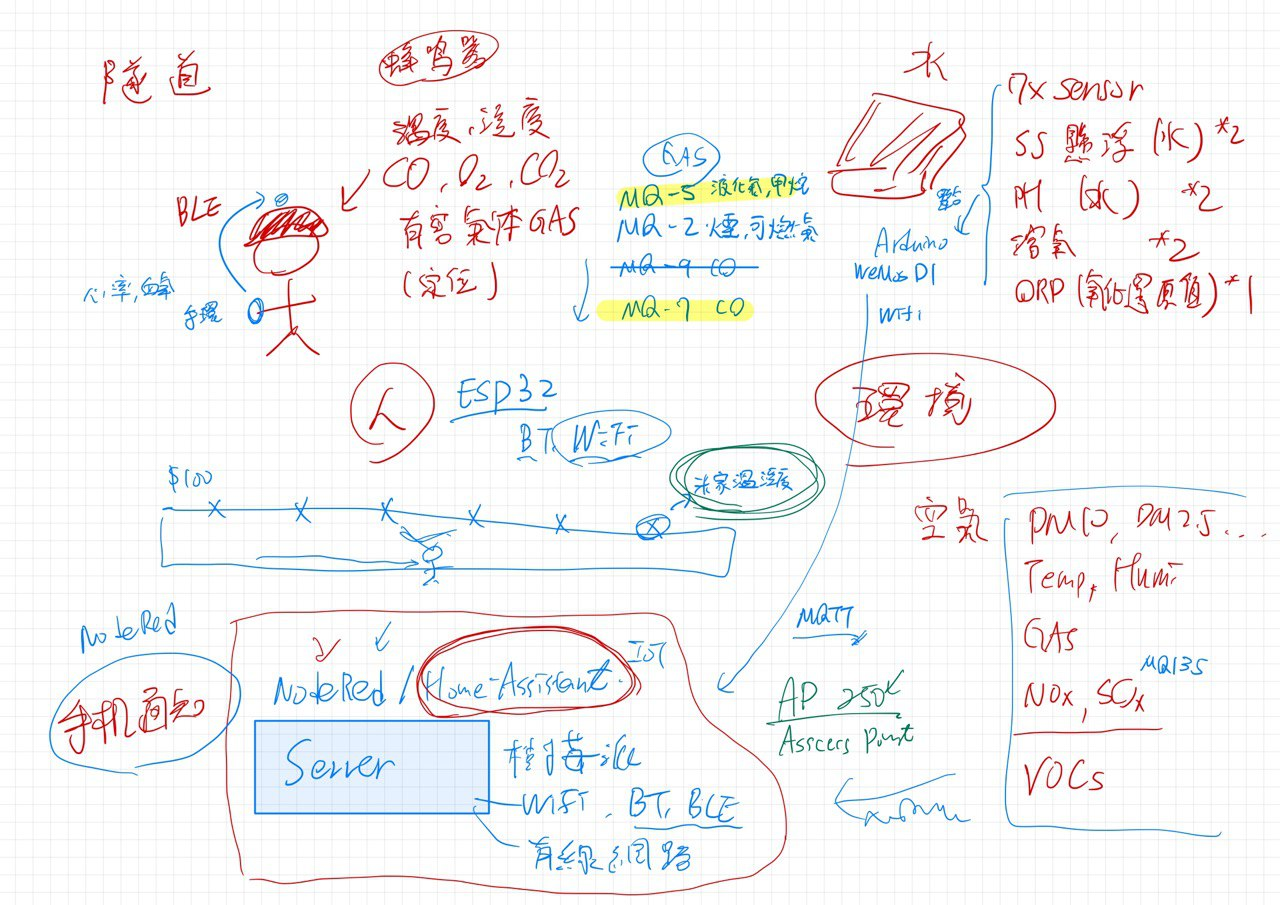 隧道
蜂鸣器
溫度, 溼度
CO, O2, CO2
有害氣体GAS
(定位)
BLE
心率, 血氧
手環
GAS
MQ-5 液化氣, 甲烷
MQ-2 煙, 可燃氣
MQ-9 CO
MQ-7 CO
水
7x sensor
SS 懸浮 (水) *2
PH (水) *2
溶氧 *2
ORP (氧化還原值) *1
Arduino
WeMos D1
WiFi
人
ESP32
BT, WiFi
環境
$100
米家溫溼度
空氣
PM10, PM2.5...
Temp, Humi
GAS
NOx, SOx
MQ135
VOCs
NodeRed
手机通知
NodeRed / Home-Assistant.
IoT
Server
樹莓派
WiFi, BT, BLE
有線網路
MQTT
AP 250
Asscers Point